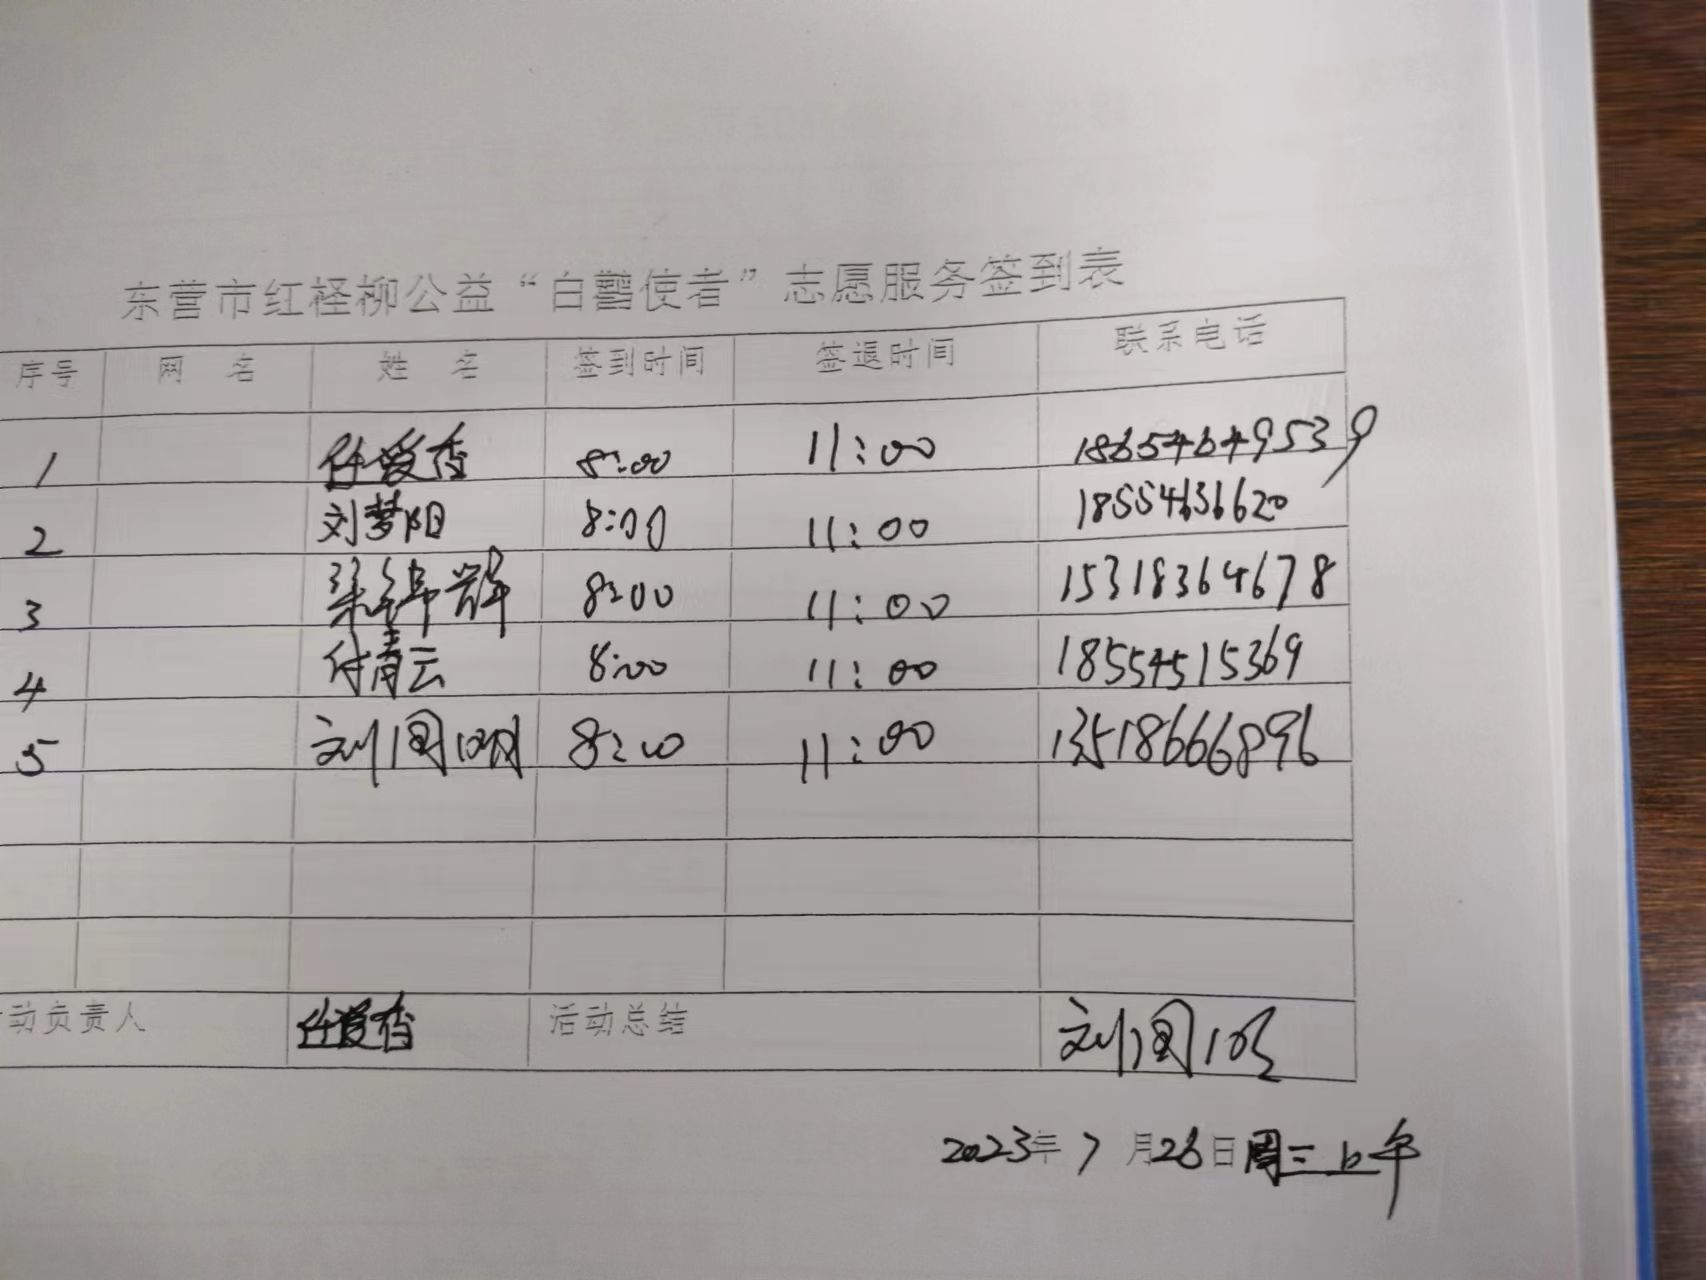 东营市红柽柳公益“白鹳使者”志愿服务签到表
序号 网 名 姓 名 签到时间 签退时间 联系电话
1 任爱香 8:00 11:00 18654649539
2 刘梦阳 8:00 11:00 18554636620
3 8:00 11:00 15318364678
4 付青云 8:00 11:00 18554515369
5 刘国明 8:00 11:00 13518666896
动负责人 任爱香 活动总结 刘国明
2023年7月26日周三上午